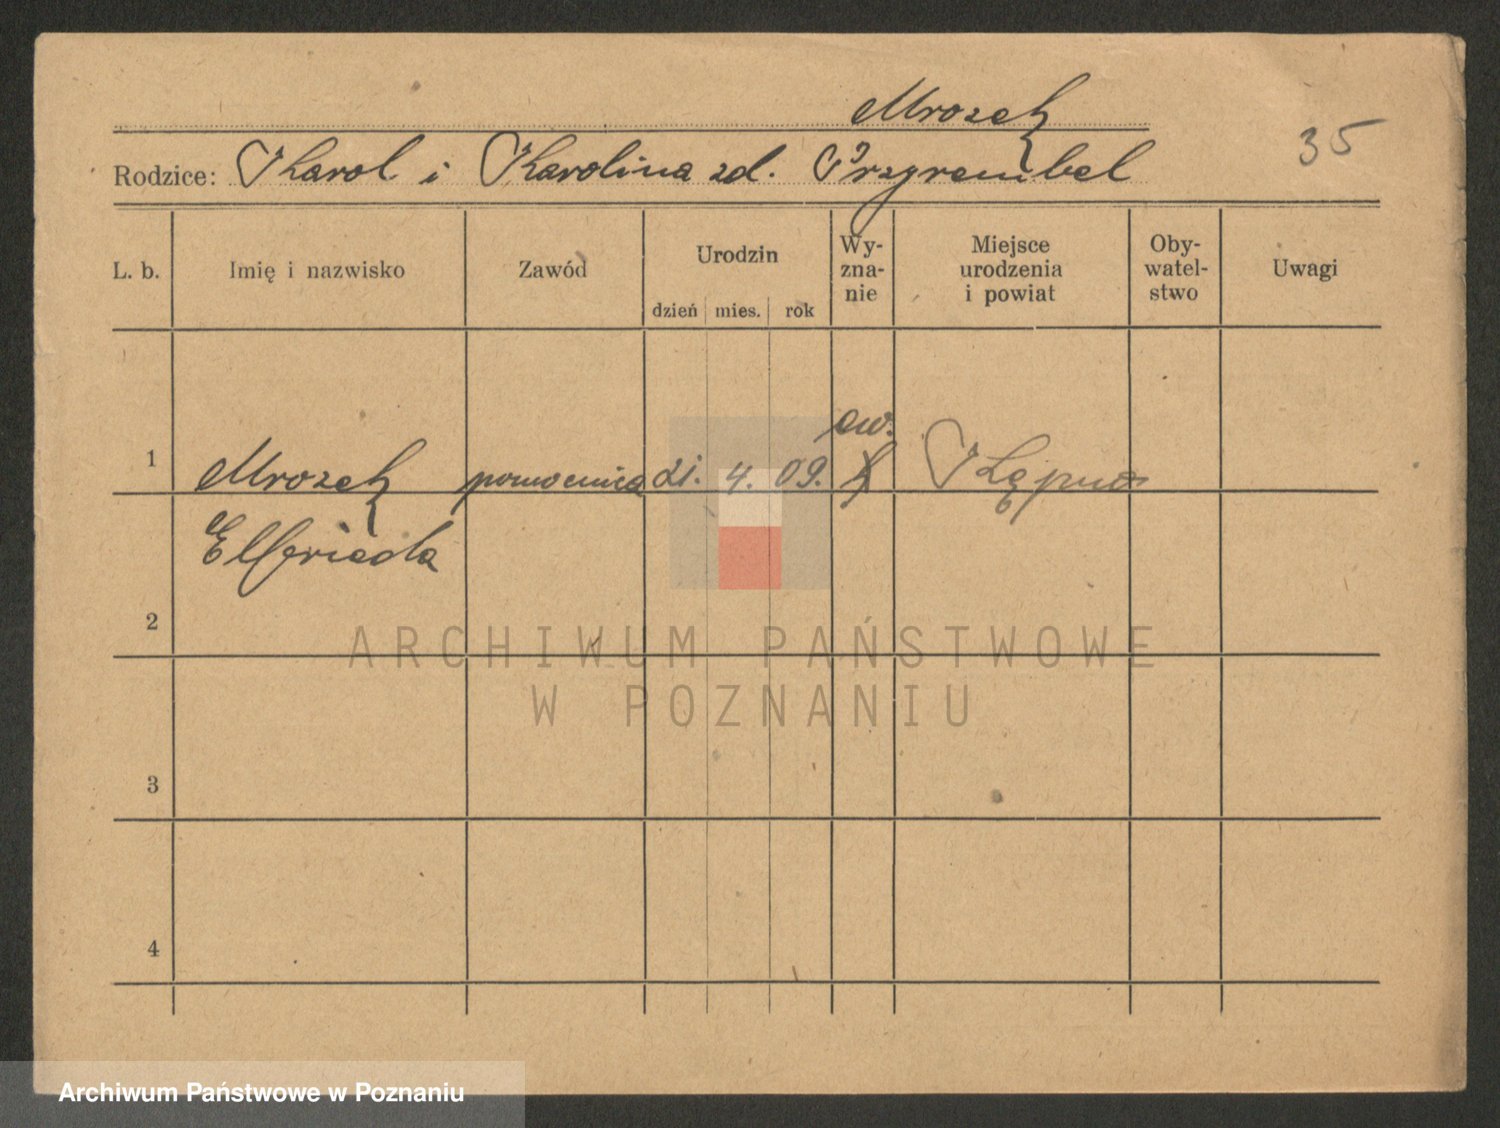 Mrozek
35
Rodzice: Karol i Karolina zd. Przyrembel
L. b.
Imię i nazwisko
Zawód
Urodzin
dzień
mies.
rok
Wy-
zna-
nie
Miejsce
urodzenia
i powiat
Oby-
watel-
stwo
Uwagi
ew.
1
Mrozek
pomocnica
21.
4.
09.
Kępno
Elfrieda
2
ARCHIWUM PAŃSTWOWE
W POZNANIU
3
4
Archiwum Państwowe w Poznaniu